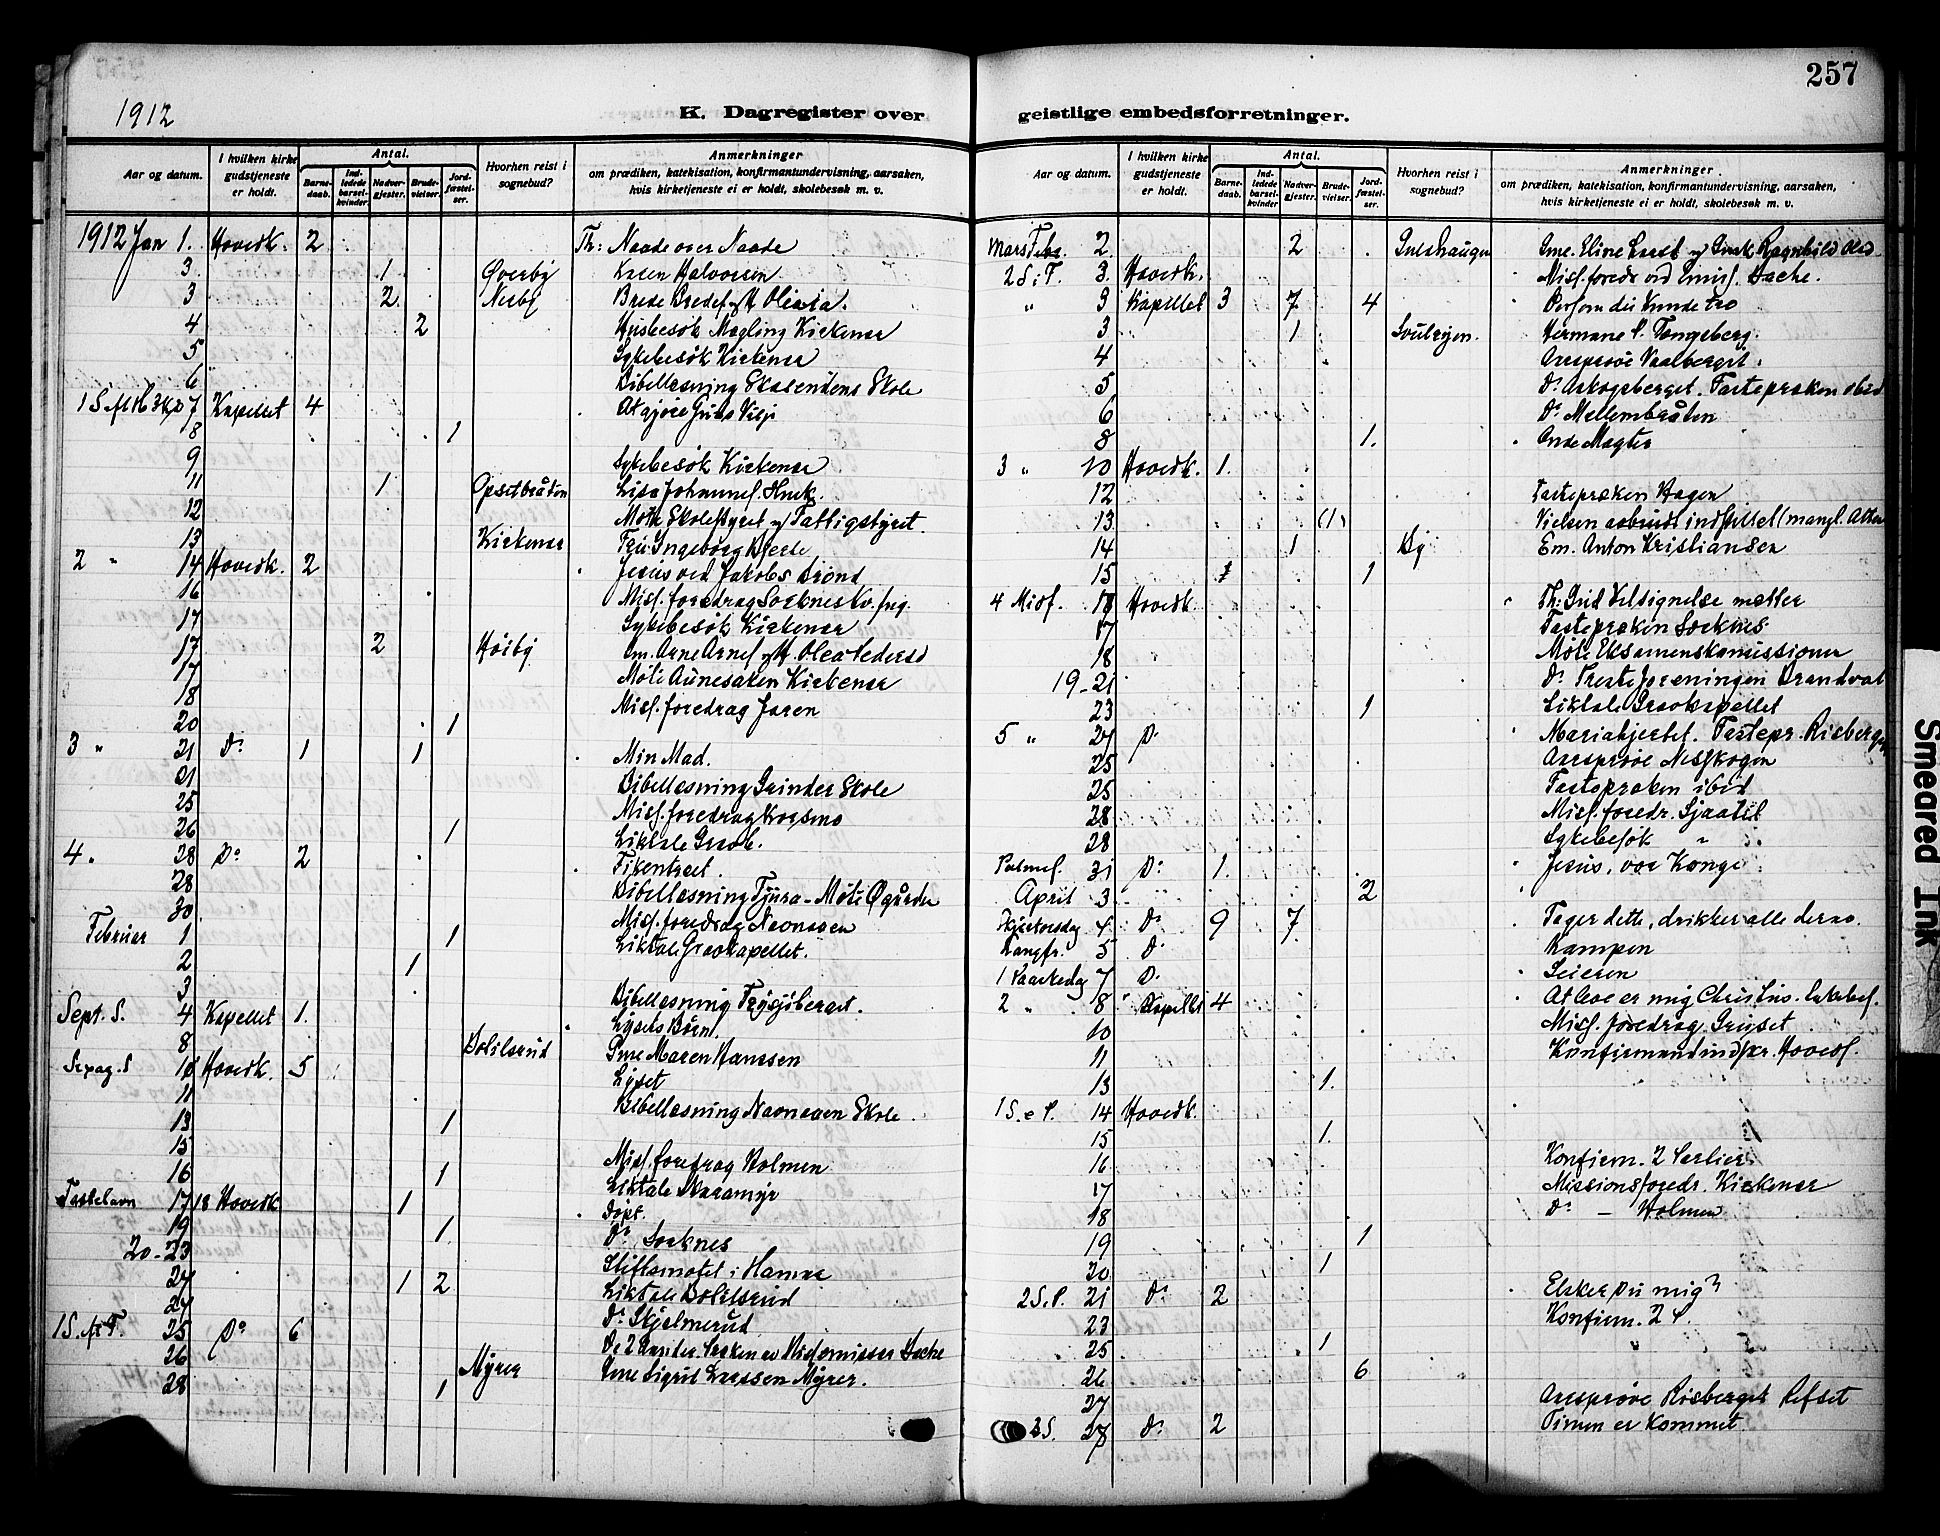 257
1912
K. Dagregister over geistlige embedsforretninger.
Aar og datum. I hvilken kirke gudstjeneste er holdt. Antal. Barnedaab. Indledede barselkvinder. Nadvergjester. Brudevielser. Jordfæstelser. Hvorhen reist i sognebud? Anmerkninger om prædiken, katekisation, konfirmantundervisning, aarsaken, hvis kirketjeneste ei er holdt, skolebesøk m. v.
1912 Jan 1. Hovedk. 2 Th: Naade over Naade
3 1 Overby Karen Halvorsen
3 2 Nerby
4 2 Husbesök Mægling Kirkenær
5 Sykebesök Kirkenær
6 Bibellæsning Skasendens Skole
7 Kapellet 4 At gjöre Guds Vilje
8 1
9 Sykebesök Kirkenær
11 1 Opsetbråten
12 Möte Skolestyret og Fattigstyret
13 Kirkenær Fru Ingeborg
2 " 14 Hovedk. 2 Jesus ved Jakobs Brönd
16 Misf. foredrag
17 Sykebesök Kirkenær
17 2 Höiby
17 Möte Kirkenær
18 Misf. foredrag Jaren
20 1
3 " 21 Do 1 1 Min Mad.
21 Bibellæsning Grinder Skole
25 Misf. foredrag Korsmo
26 1 Liktale Grav.
4 " 28 Do 2 Fikentræet
28 Bibellæsning Tjura - Möte Øgården
30 Misf. foredrag Navnaaen
Februar 1 1 Liktale Gravkapellet.
2 1
3 Bibellæsning Frysjöberget.
Sept. S. 4 Kapellet 1. Lysets Börn.
8 Bolilsrud Pme Maren Hanssen
Sexag. S 10 Hovedk. 5 Lyset
11 Bibellæsning Navnaaen Skole.
13 1
15 Misf. foredrag Holmen
16 1 Liktale
Fastelavn 17 18 Hovedk 1 Döpt.
19 1 Do Sorknes
20-23 Stiftsmötet i Hamar
24 1 2 Liktale Bolilsrud
24 Do Skjelmerud
1 S. i F. 25 Do 6
26 Myrer Pme Sigrid Larssen Myrer.
28 1
Aar og datum. I hvilken kirke gudstjeneste er holdt. Antal. Barnedaab. Indledede barselkvinder. Nadvergjester. Brudevielser. Jordfæstelser. Hvorhen reist i sognebud? Anmerkninger om prædiken, katekisation, konfirmantundervisning, aarsaken, hvis kirketjeneste ei er holdt, skolebesøk m. v.
Mars 2 2
2 S. i F. 3 Hovedk. Misf. foredr ved Emisf. Bache.
" 3 Kapellet 3 7 4 Dersom du kunde tro
3 1 Hermane P. Tangeberg.
4 Aarsprøve Vaalberget.
5 Do Askogsberget. Fastepræken ibid
6 Do Mellembråten
8 1. Onde Magter
3 " 10 Hovedk. 1.
12 Fastepræken Hagen
13 (1) Vielsen avbrudt indstillet (mangl. Attest
14 1 By Em. Anton Kristiansen
15 1
4 Midf. 17 Hovedk. Th: Guds Velsignelse mætter
17 Fastepræken Sorknes
18 Möte Eksamenskomissionen
19-21 Do Presteforeningen Brandval
23 1 Liktale Gravkapellet
5 " 24 Do Mariahjertet. Fastepr. Risberget
25 Aarsprøve Nesskogen
25 Fastepræken ibid
28 Misf. foredr. Sjaatil
28 Sykebesök "
Palmes. 31 Do 1. Jesus, vor Konge
April 3 2
Skjærtorsdag 4 Do 9 7 Tager dette, drikker alle derav.
Langfr. 5 Do Kampen
1 Paaskedag 7 Do Seieren
2 " 8 Kapellet 4 At leve er mig Christus.
10 Misf. foredrag Gruset
11 Konfirmandindskr. Hovedk.
13 1.
1 S. e P. 14 Hovedk.
15 1.
16 Konfirm. 2 Partier
17 Missionsforedr. Kirkenær
18 Do - Holmen
19 1
20 1
2 S. P. 21 Do 2 Elsker du mig?
23 Konfirm. 2 P.
25 1 "
26 6
27 Aarsprøve Risberget Refset
3 S. 28 Do 2 Timen er kommet.
Smeared Ink